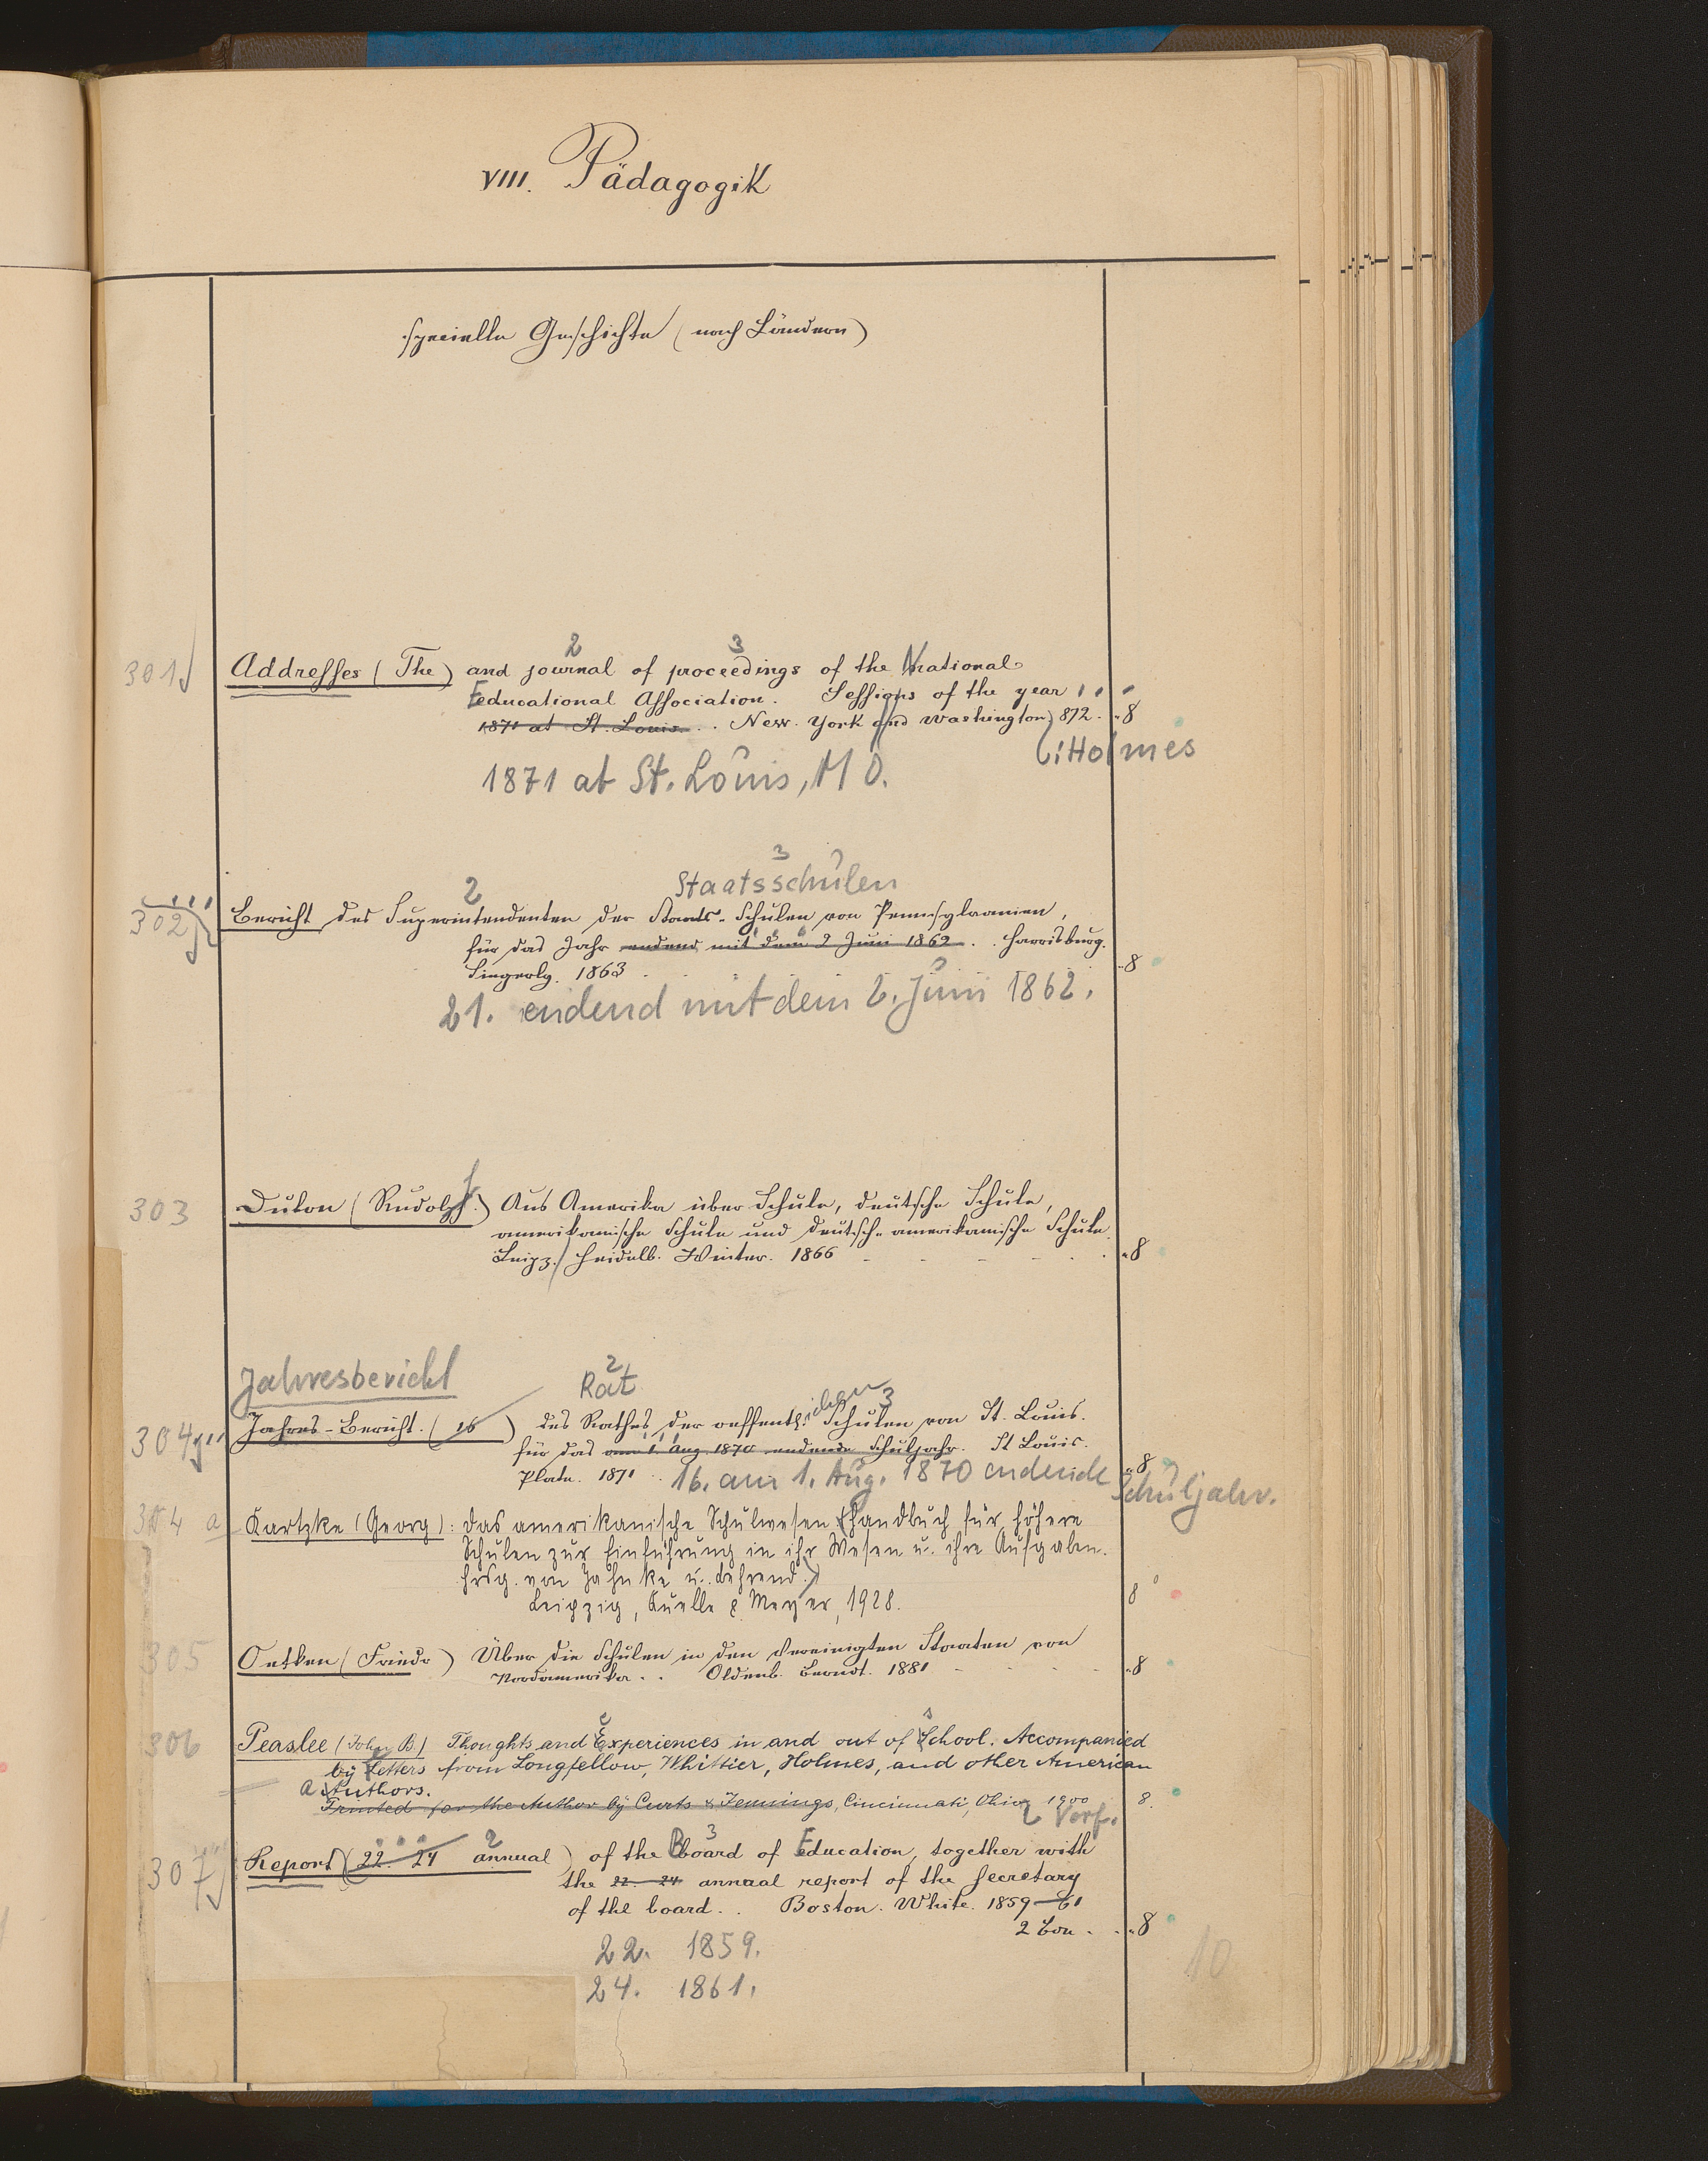 VIII. Pädagogik
specielle Geschichte (nach Ländern)
2 3
301 Addresses (The) and journal of proceedings of the National
Educational Association. Sessions of the year
1871 at St. Louis. . New-York and Washington 872. 8
: Holmes
1871 at St. Louis, MO.
3
2 Staatsschulen
302 Bericht des Superintendenten der Staats-Schulen von Pennsylvanien,
für das Jahr endend mit dem 2 Juni 1862 . . Harrisburg.
Singerly. 1863 8
21. endend mit dem 2. Juni 1862.
303 Dulon (Rudolph) Aus Amerika über Schule, deutsche Schule,
amerikanische Schule und deutsch-amerikanische Schule.
Leipz. Heidelb. Winter. 1866 8
Jahresbericht 2 Rat
ichen 3
304 Jahres-Bericht. (16 ) des Rathes der oeffentl. Schulen von St. Louis.
für das am 1. Aug 1870 endende Schuljahr. St Louis.
Plate. 1871 8
16. am 1. Aug. 1870 endende Schuljahr.
304 a Kartzke (Georg): Das amerikanische Schulwesen (Handbuch für höhere
Schulen zur Einführung in ihr Wesen u. ihre Aufgaben.
Hrsg. von Jahnke u. Behrend.)
Leipzig, Quelle & Meyer, 1928. 8°
305 Oetken (Friedr) Über die Schulen in den Vereinigten Staaten von
Nordamerika . . Oldenb. Berndt. 1881 8
306 Peaslee (John B.) Thoughts and Experiences in and out of School. Accompanied
by Letters from Longfellow, Whittier, Holmes, and other American
Authors.
Printed for the Author by Curts & Jennings, Cincinnati, Ohio 1900 8.
Verf.
2 3
307 Report (22. 24 annual) of the Board of Education, together with
the 22. 24 annual report of the secretary
of the board. . Boston. White. 1859-61
2 Bde. 8
22. 1859.
24. 1861.
10